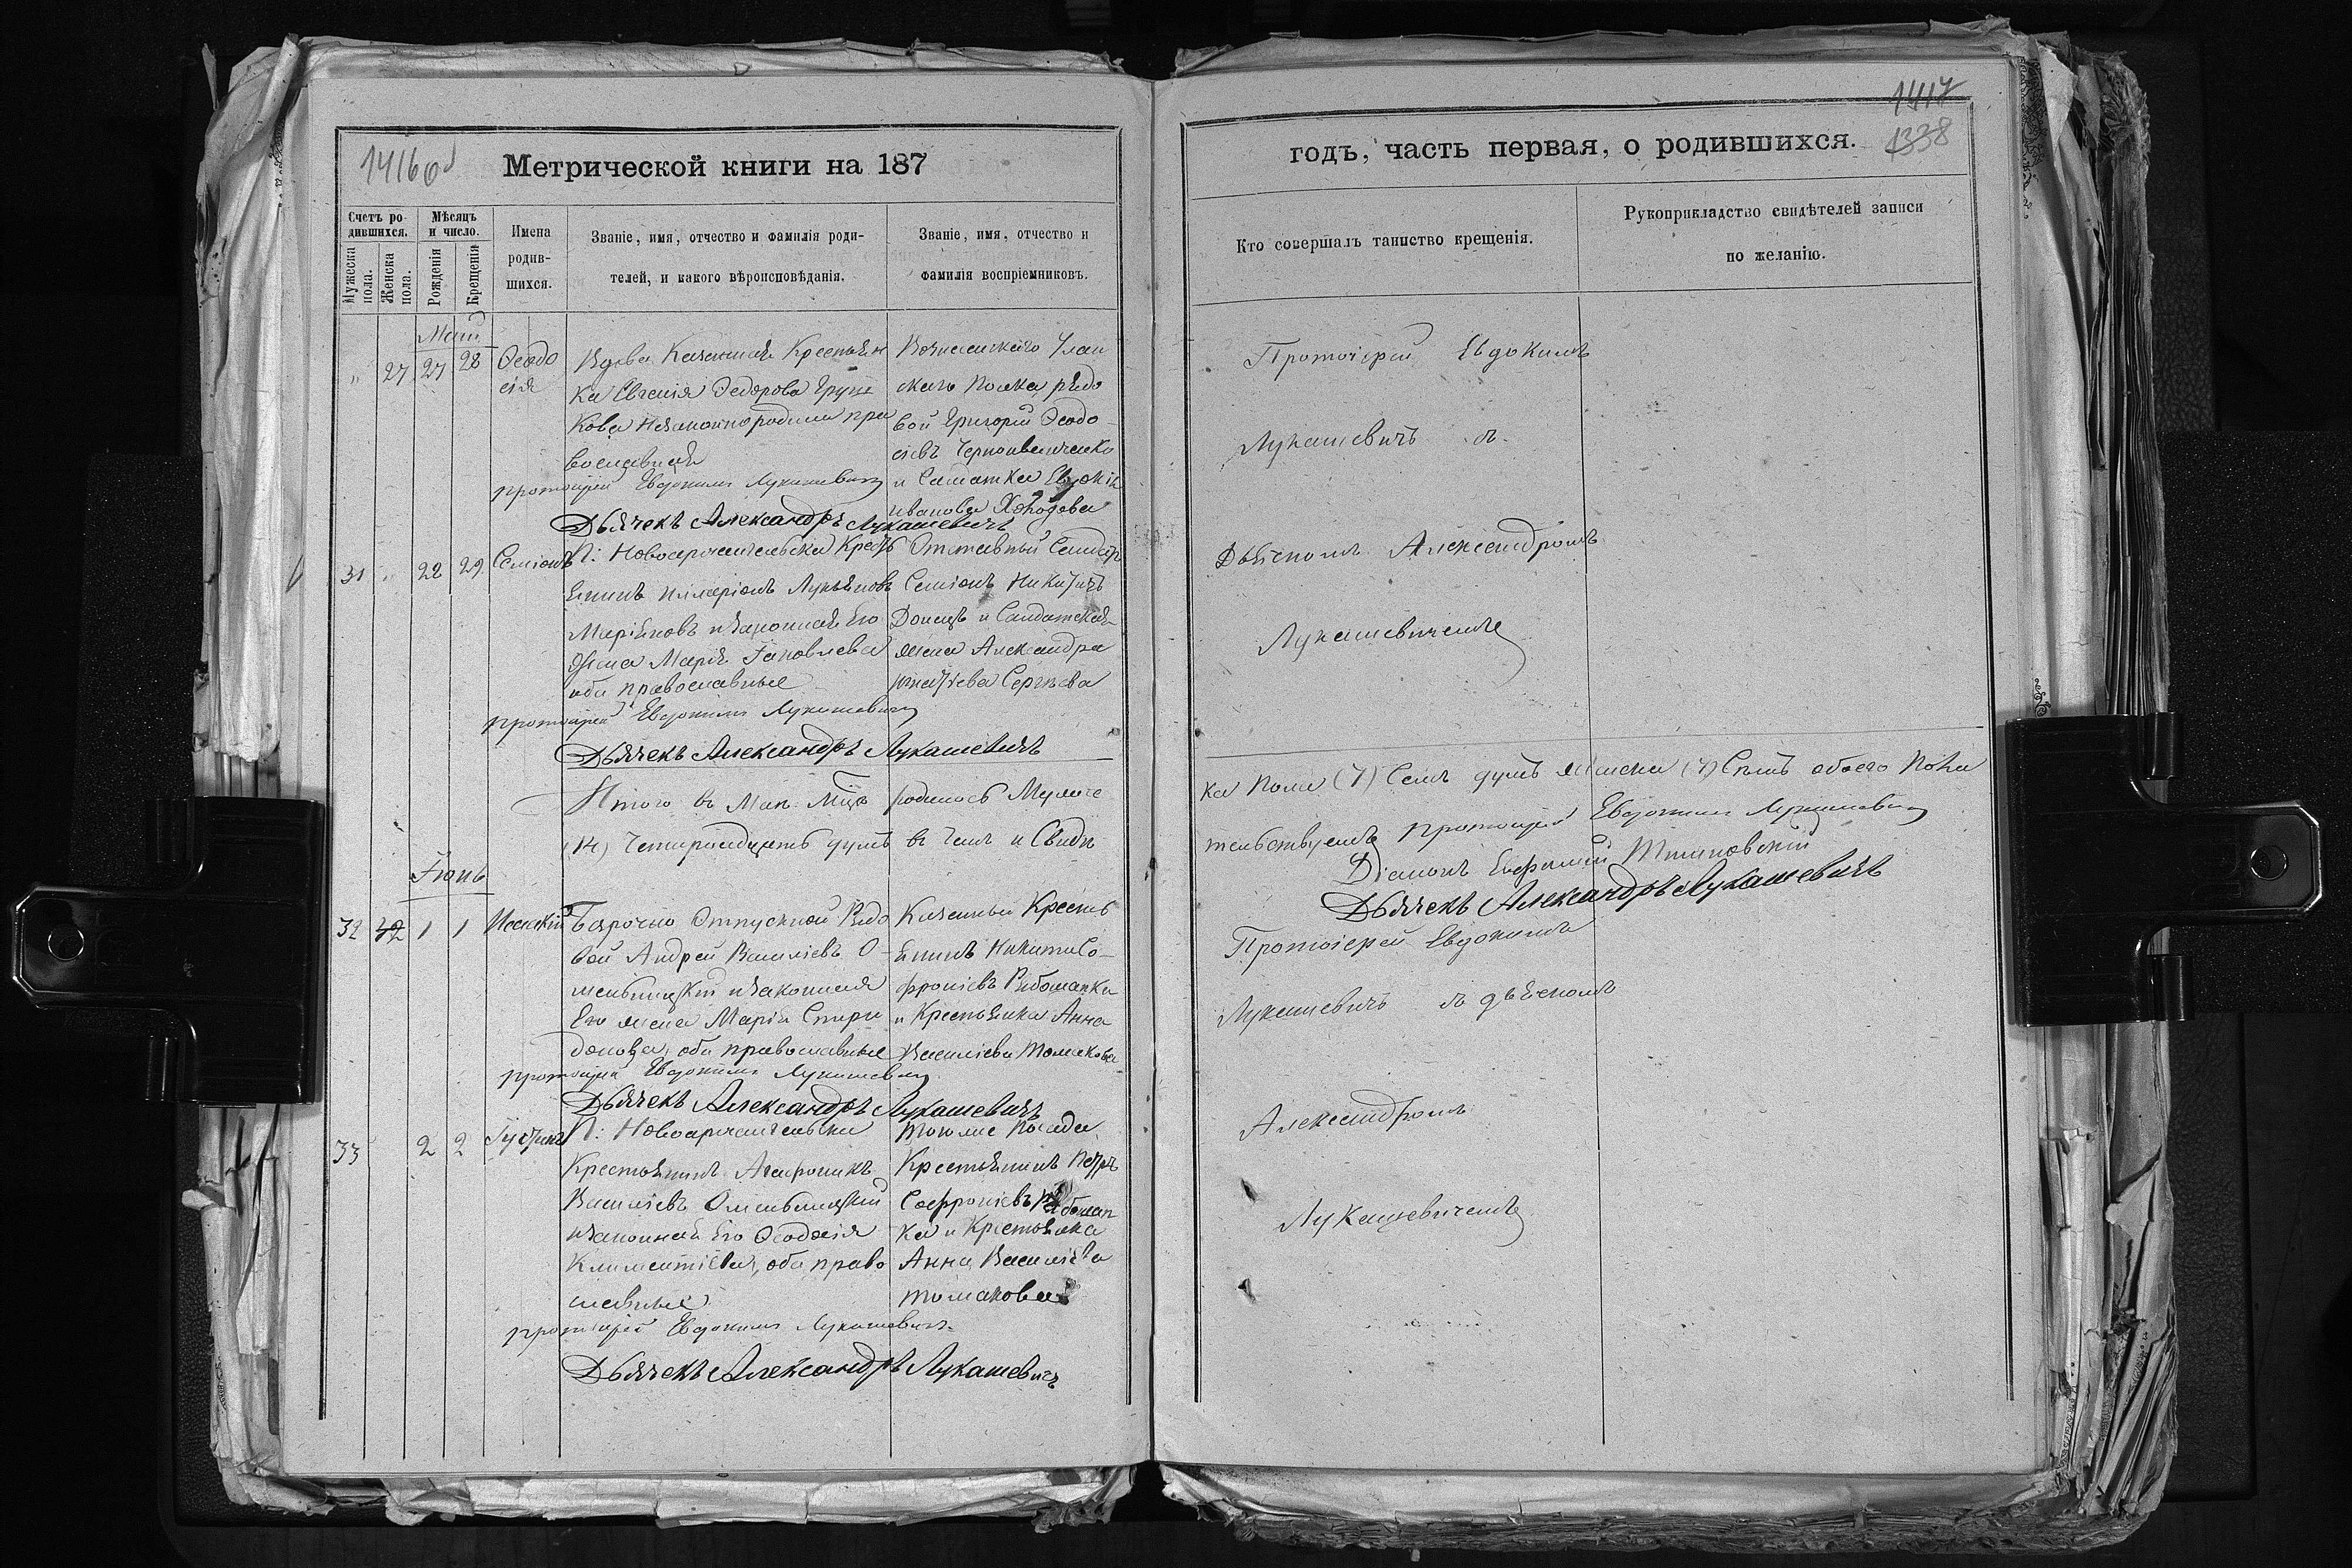 1416 об
Метрической книги на 187
Счетъ родившихся.
Мѣсяцъ и число.
Мужеска пола.
Женска пола.
Рожденія
Крещенія
Имена родившихся.
Званіе, имя, отчество и фамилія роди-
телей, и какого вѣроисповѣданія.
Званіе, имя, отчество и
фамилія воспріемниковъ.
Май
" 27 27 28 Ѳеодо
сія
Вдова Казенная Крестьян
ка Евгенія Ѳедорова
кова Незаконнородила пра
вославная
протоіерей Евдокимъ Лукашевичъ
Дьячекъ Александръ Лукашевичъ
Вознесенскаго Улан
скаго полка рядо
вой Григорій Ѳеодо
сіевъ
и Солдатка Евдокія
иванова
31 " 22 29 Семіонъ
П: Новоархангельска Кресть
янинъ Илларіонъ Лукьяновъ
Маріяновъ изаконная Его
Жена Марія Іаковлева
оба православные
протоіерей Евдокимъ Лукашевичъ
Дьячекъ Александръ Лукашевичъ
Отставный Солдатъ
Семіонъ Никитичъ
Донецъ и Солдатская
жена Александра
Сергѣева
Итого въ Маѣ М-цѣ родилось Мужес
(14) Четырнадцать душъ въ чемъ и Свидѣ
Іюнь
32 42 1 1 Исаакій
Безсрочно Отпускной Рядо
вой Андрей Василіевъ О-
мельницкій изаконная
Его жена Марія Спири
донова, оба православные
протоіерей Евдокимъ Лукашевичъ
Дьячекъ Александръ Лукашевичъ
Казенный Кресть
янинъ Никита Со-
фроніевъ Рябошапка
и Крестьянка Анна
Василіева Томакова
33 2 2 Іустинъ
П: Новоархангельска
Крестьянинъ
Василіевъ Омельницкій
изаконная Его Ѳеодосія
Климентіева, оба право
славные
протоіерей Евдокимъ Лукашевичъ
Дьячекъ Александръ Лукашевичъ
тогоже Посада
Крестьянинъ Петръ
Софроніевъ Рябошап
ка и Крестьянка
Анна Василіева
томакова
1417
1338
годъ, часть первая, о родившихся.
Кто совершалъ таинство крещенія.
Рукоприкладство свидѣтелей записи
по желанію.
Протоіерей Евдокимъ
Лукашевичъ съ
Дьячкомъ Александромъ
Лукашевичемъ
ка Пола (7) Семь душъ женска (7) Семь обоего пола
тельствуемъ протоіерей Евдокимъ Лукашевичъ
Діаконъ
Дьячекъ Александръ Лукашевичъ
Протоіерей Евдокимъ
Лукашевичъ съ дьячкомъ
Александромъ
Лукашевичемъ